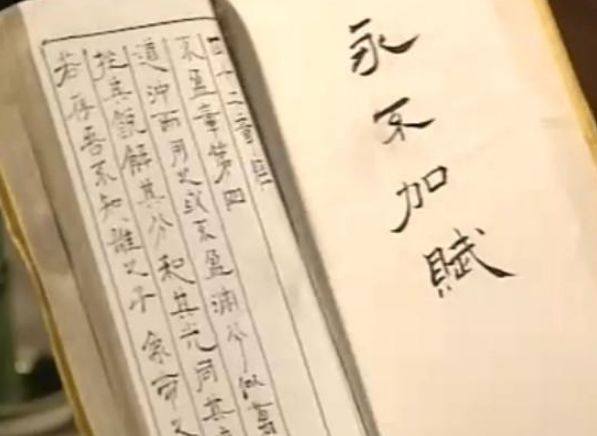 永不加賦
四十二章經
不盈章第四
道沖而用之或不盈淵兮似萬
挫其銳解其分和其光同其
若存吾不知誰之子象帝之